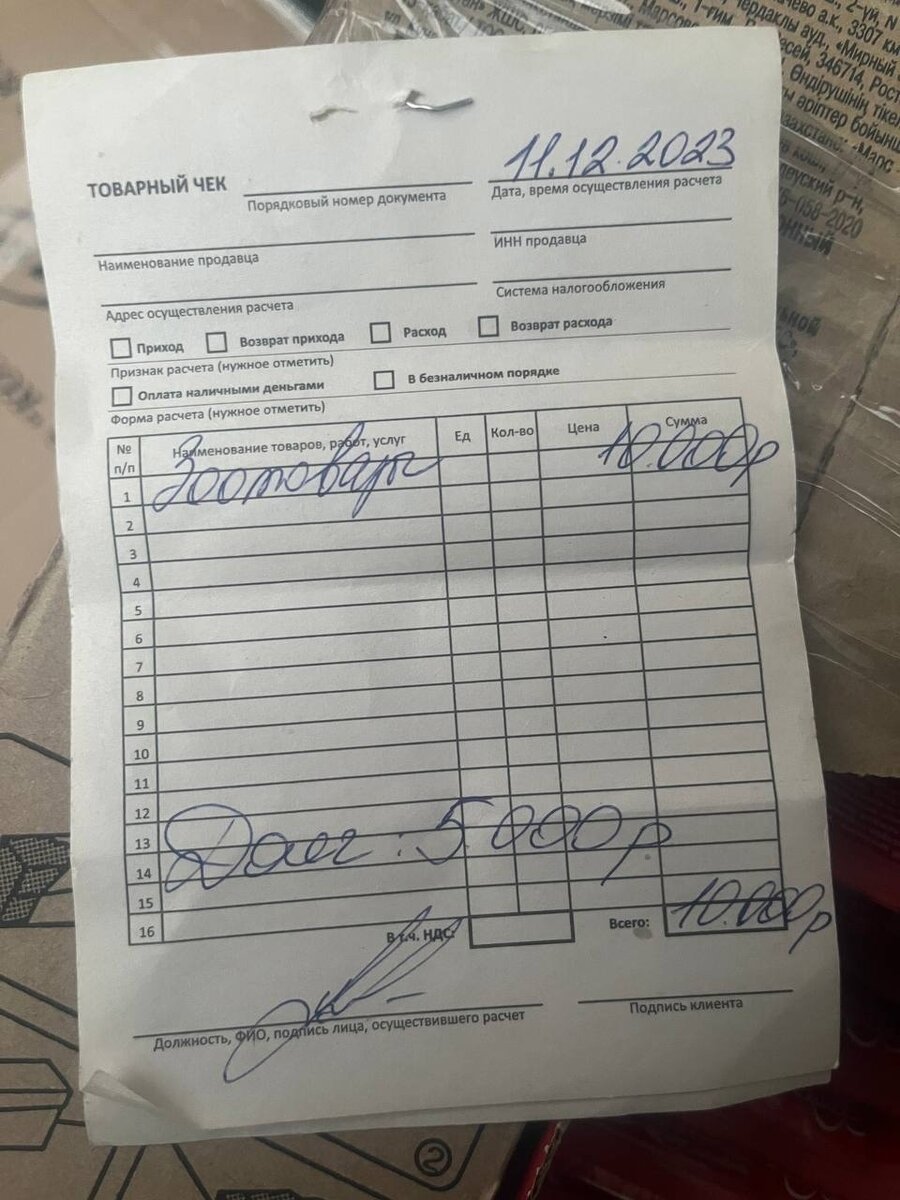 2-үй, N
ачево а.к., 3307 км
Чердаклы ауд., «Мирный
346714, Рост
Өндірушінің тікел
ы әріптер бойынш
азақстан: «Марс
058-2020
11.12.2023
ТОВАРНЫЙ ЧЕК
Порядковый номер документа
Дата, время осуществления расчета
Наименование продавца
ИНН продавца
Адрес осуществления расчета
Система налогообложения
Приход Возврат прихода Расход Возврат расхода
Признак расчета (нужное отметить)
Оплата наличными деньгами В безналичном порядке
Форма расчета (нужное отметить)
№ п/п Наименование товаров, работ, услуг Ед Кол-во Цена Сумма
1 Зоотовары 10.000р
2
3
4
5
6
7
8
9
10
11
12
13 Долг: 5.000р
14
15
16
В т.ч. НДС: Всего: 10.000р
Должность, ФИО, подпись лица, осуществившего расчет
Подпись клиента